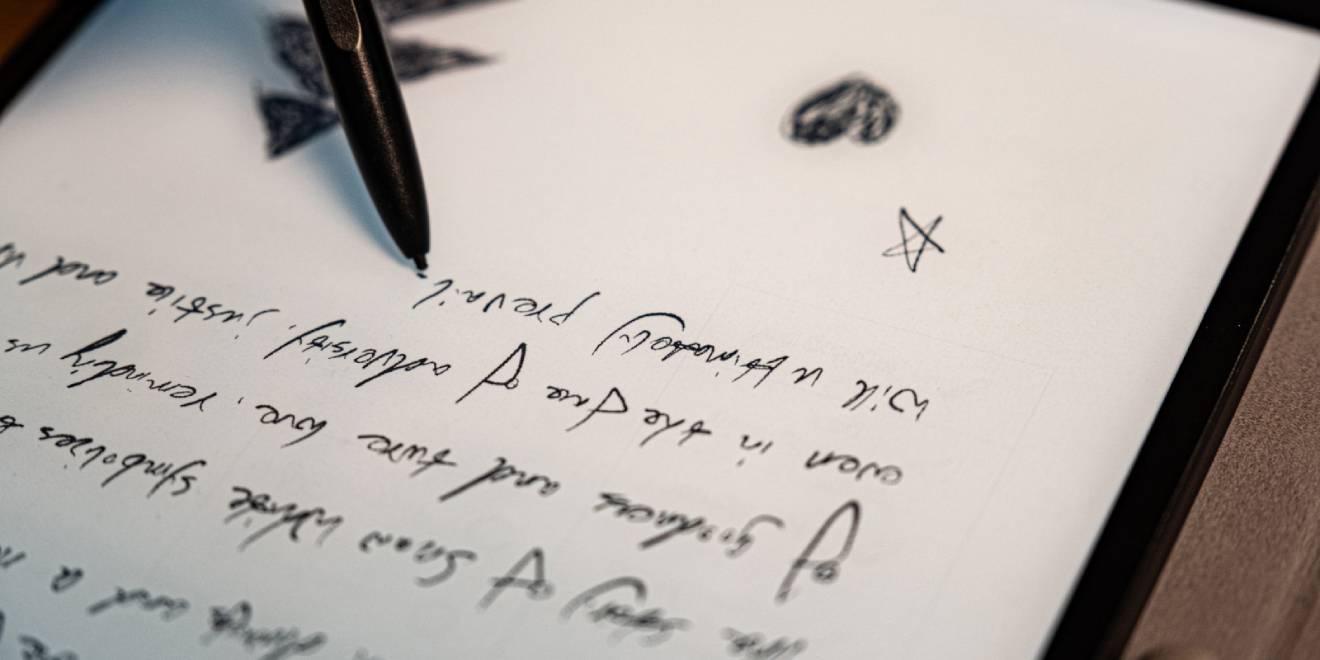 and a
The story of Snow White symbolizes
of goodness and true love, reminding us
even in the face of adversity, justice and
will ultimately prevail